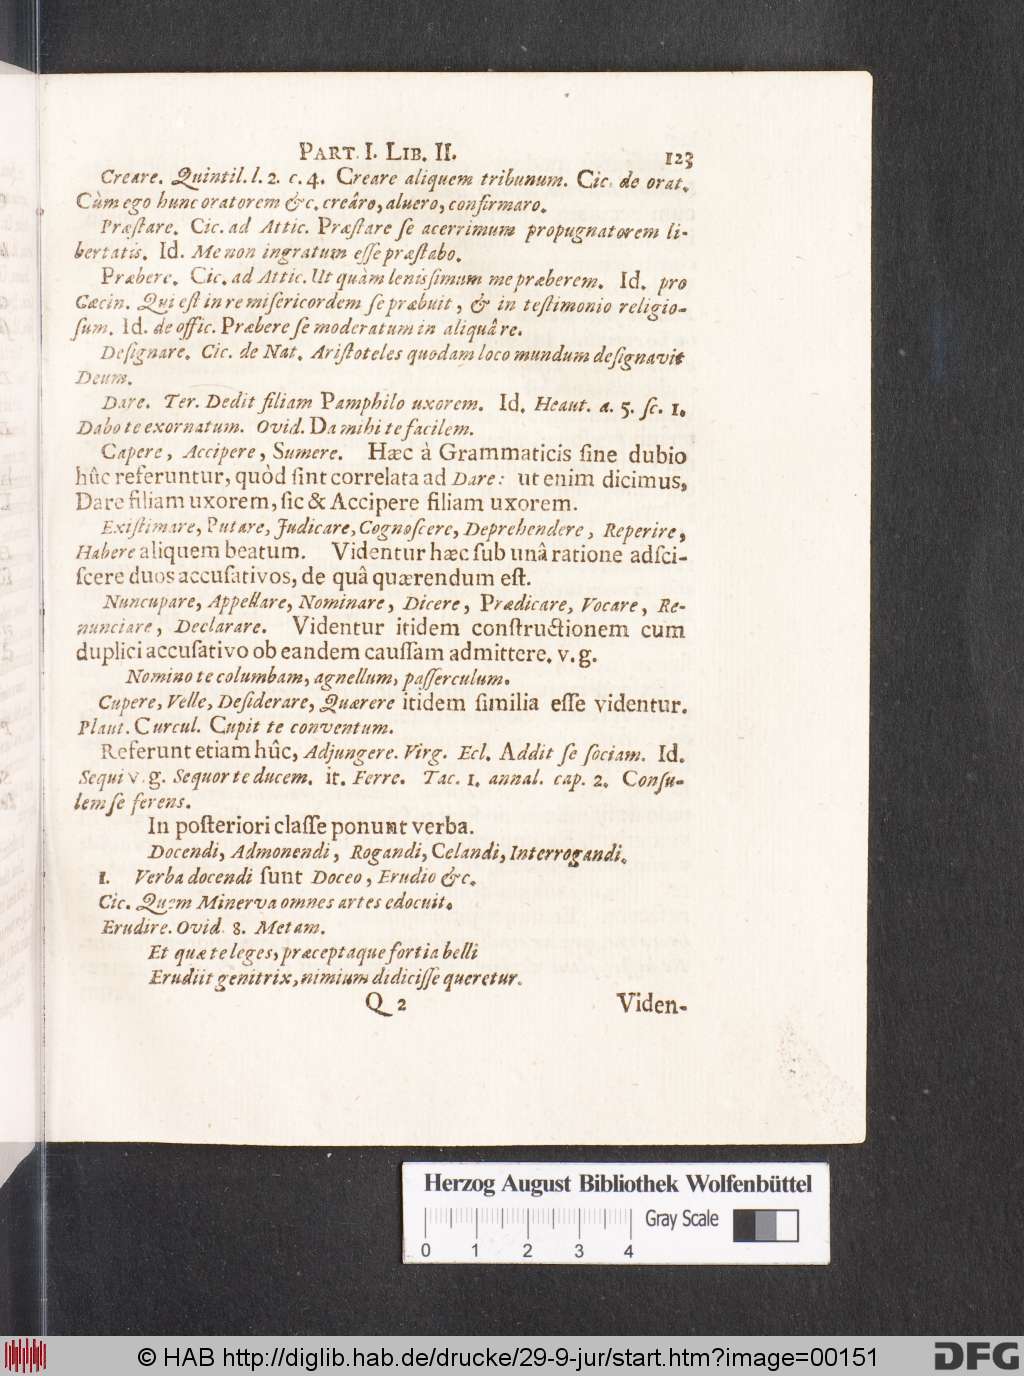 PART. I. LIB. II. 123
Creare. Quintil. l. 2. c. 4. Creare aliquem tribunum. Cic. de orat.
Cùm ego hunc oratorem &c. creâro, aluero, confirmaro.
Præſtare. Cic. ad Attic. Præſtare ſe acerrimum propugnatorem li-
bertatis. Id. Me non ingratum eſſe præſtabo.
Præbere. Cic. ad Attic. Ut quàm leniſſimum me præberem. Id. pro
Cæcin. Qui eſt in re miſericordem ſe præbuit, & in teſtimonio religio-
ſum. Id. de offic. Præbere ſe moderatum in aliquâ re.
Deſignare. Cic. de Nat. Ariſtoteles quodam loco mundum deſignavit
Deum.
Dare. Ter. Dedit filiam Pamphilo uxorem. Id. Heaut. a. 5. ſc. 1.
Dabo te exornatum. Ovid. Da mihi te facilem.
Capere, Accipere, Sumere. Hæc à Grammaticis ſine dubio
hûc referuntur, quòd ſint correlata ad Dare: ut enim dicimus,
Dare filiam uxorem, ſic & Accipere filiam uxorem.
Exiſtimare, Putare, Judicare, Cognoſcere, Deprehendere, Reperire,
Habere aliquem beatum. Videntur hæc ſub unâ ratione adſci-
ſcere duos accuſativos, de quâ quærendum eſt.
Nuncupare, Appellare, Nominare, Dicere, Prædicare, Vocare, Re-
nunciare, Declarare. Videntur itidem conſtructionem cum
duplici accuſativo ob eandem cauſſam admittere. v. g.
Nomino te columbam, agnellum, paſſerculum.
Cupere, Velle, Deſiderare, Quærere itidem ſimilia eſſe videntur.
Plaut. Curcul. Cupit te conventum.
Referunt etiam hûc, Adjungere. Virg. Ecl. Addit ſe ſociam. Id.
Sequi v. g. Sequor te ducem. it. Ferre. Tac. 1. annal. cap. 2. Conſu-
lem ſe ferens.
In poſteriori claſſe ponunt verba.
Docendi, Admonendi, Rogandi, Celandi, Interrogandi.
1. Verba docendi ſunt Doceo, Erudio &c.
Cic. Quem Minerva omnes artes edocuit.
Erudire. Ovid. 8. Metam.
Et quæ te leges, præceptaque fortia belli
Erudiit genitrix, nimium didiciſſe queretur.
Q 2 Viden-
Herzog August Bibliothek Wolfenbüttel
Gray Scale
0 1 2 3 4
© HAB http://diglib.hab.de/drucke/29-9-jur/start.htm?image=00151
DFG